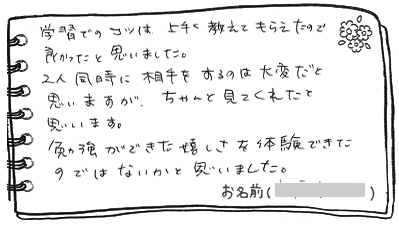 学習でのコツは、上手く教えてもらえたので
良かったと思いました。
2人同時に相手をするのは大変だと
思いますが、ちゃんと見てくれたと
思います。
勉強ができた嬉しさを体験できた
のではないかと思いました。
お名前( )